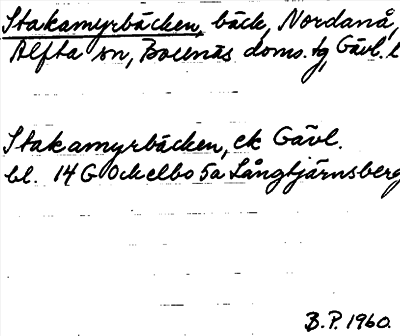 Stakamyrbäcken, bäck, Nordanå,
Alfta sn, Bollnäs doms. tg, Gävl. l
Stakamyrbäcken, ek Gävl.
bl. 14 G Ockelbo 5a Långtjärnsberg
B.P. 1960.